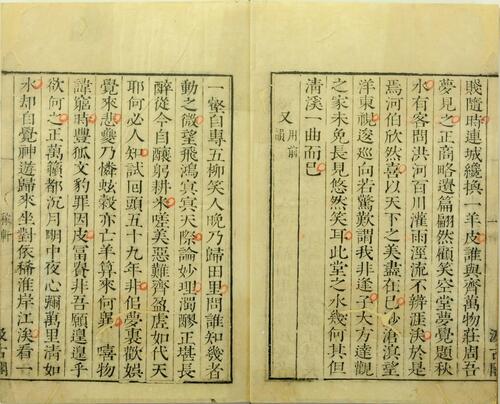 賤隨時連城纔換一羊皮誰與齊萬物莊周吾
夢見之正商略遺篇翩然顧笑空堂夢覺題秋
水有客問洪河百川灌雨涇流不辨涯涘於是
焉河伯欣然喜以天下之美盡在已渺滄溟望
洋東視逡巡向若驚歎謂我非逢子大方達觀
之家未免長見悠然笑耳此堂之水幾何其但
清溪一曲而已
又 用前韻
一壑自專五柳笑人晚乃歸田里問誰知幾者
動之微望飛鴻冥冥天際論妙理濁醪正堪長
醉從今自釀躬耕來嗟美惡難齊盈虛如代天
耶何必人知試回頭五十九年非佀夢裏歡娛
覺來悲夔乃憐蚿穀亦亡羊算來何異 嘻物
諱窮時豐狐文豹罪因皮富貴非吾願皇皇乎
欲何之正萬籟都沉月明中夜心彌萬里清如
水却自覺神遊歸來坐對依稀淮岸江涘看一
稼軒
汲古閣